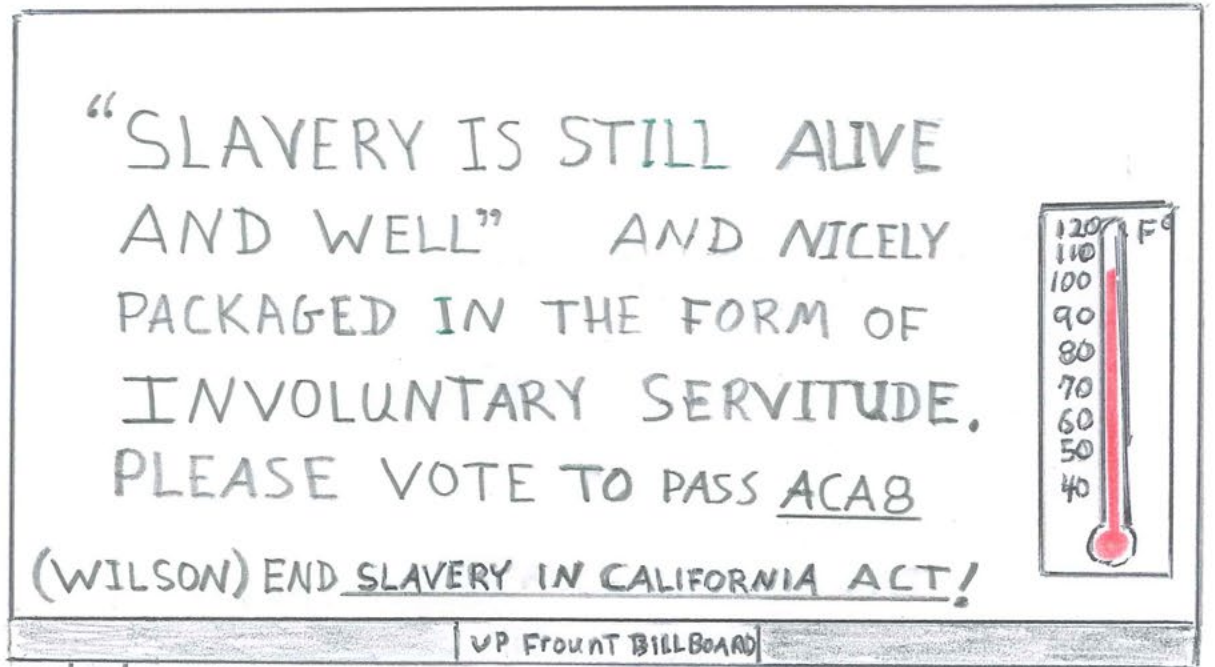 “SLAVERY IS STILL ALIVE
AND WELL” AND NICELY
PACKAGED IN THE FORM OF
INVOLUNTARY SERVITUDE.
PLEASE VOTE TO PASS ACA8
(WILSON) END SLAVERY IN CALIFORNIA ACT!
120 F°
110
100
90
80
70
60
50
40
UP FrounT BILLBOARD